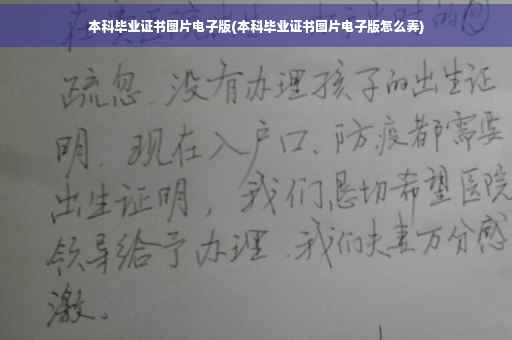 本科毕业证书图片电子版(本科毕业证书图片电子版怎么弄)
疏忽、没有办理孩子的出生证
明、现在入户口、防疫都需要
出生证明，我们恳切希望医院
领导给予办理、我们夫妻万分感
激。